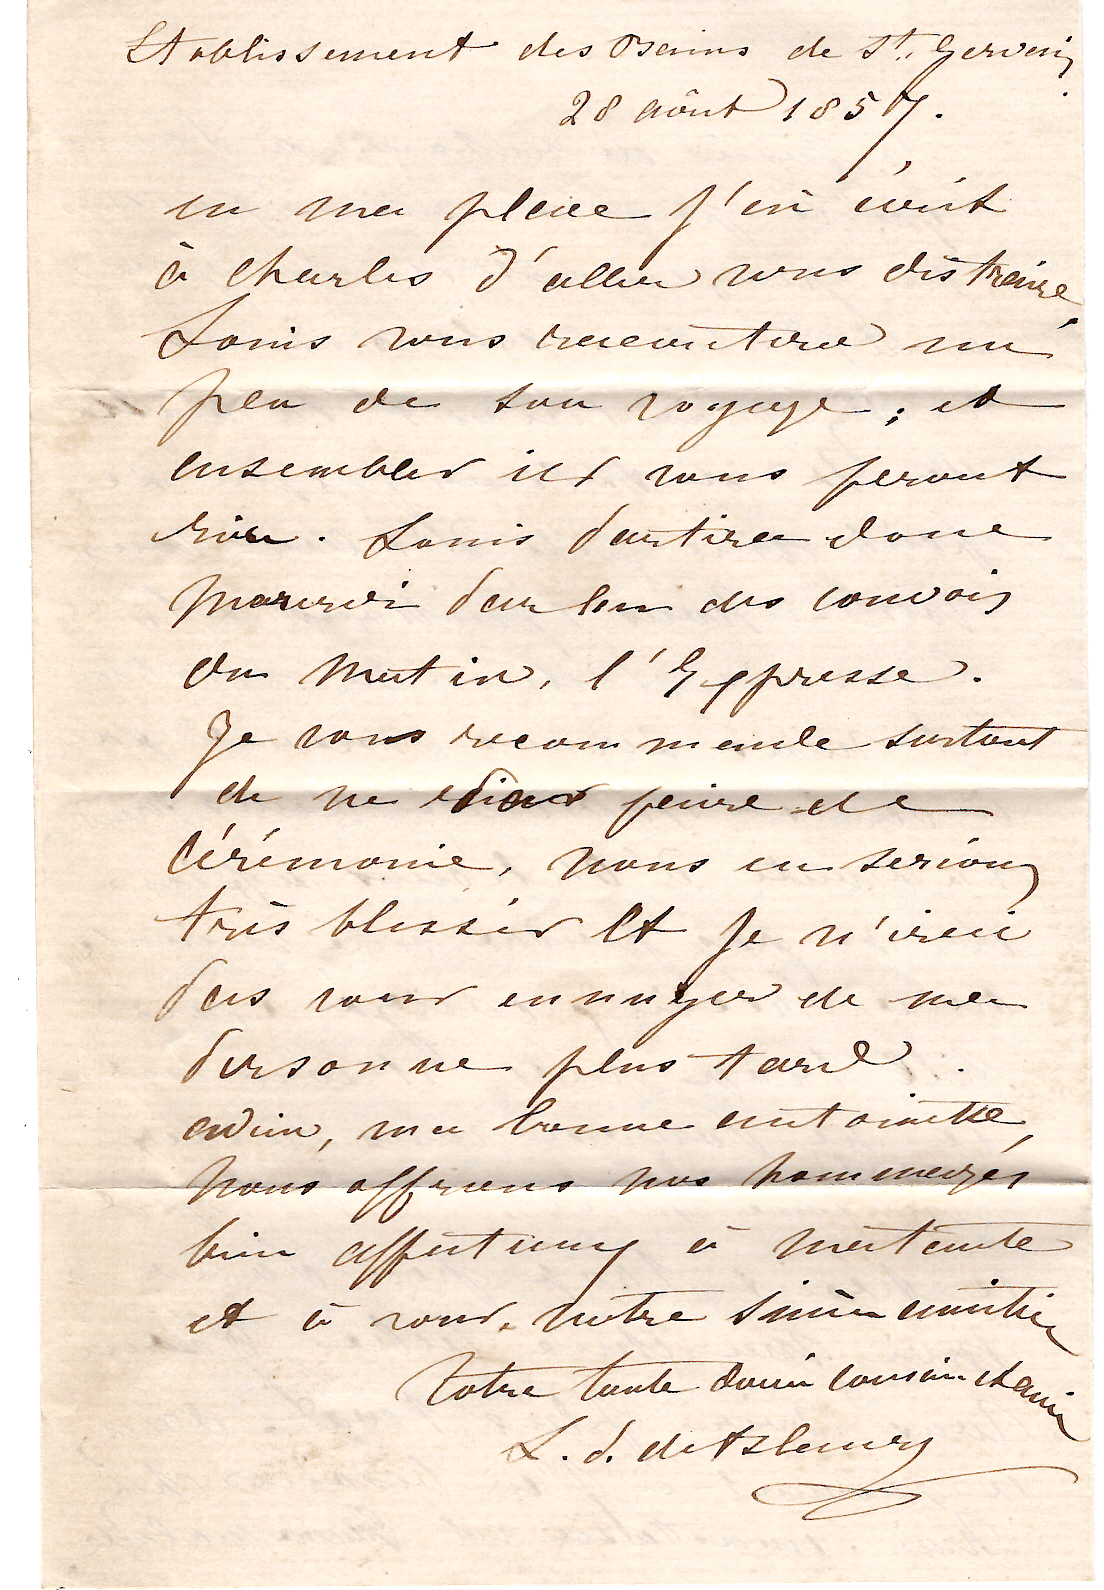 Etablissement des Bains de St. Gervais
28 août 1857.
en ma place j'ai écrit
à Charles d'aller vous distraire,
Louis vous racontera un
peu de son voyage ; et
ensembles ils vous feront
rire. Louis partira donc
par l'un des convois
du matin, l'Expresse.
Je vous recommande surtout
de ne faire de
Cérémonie, nous en serions
très blessés Et Je n'irai
pas vous ennuyer de ma
personne plus tard.
adieu, ma bonne antoinette,
Nous offrons nos hommages
bien affectueux à ma tante
et à vous, notre sincère amitié
Votre toute cousine et amie
L. d.